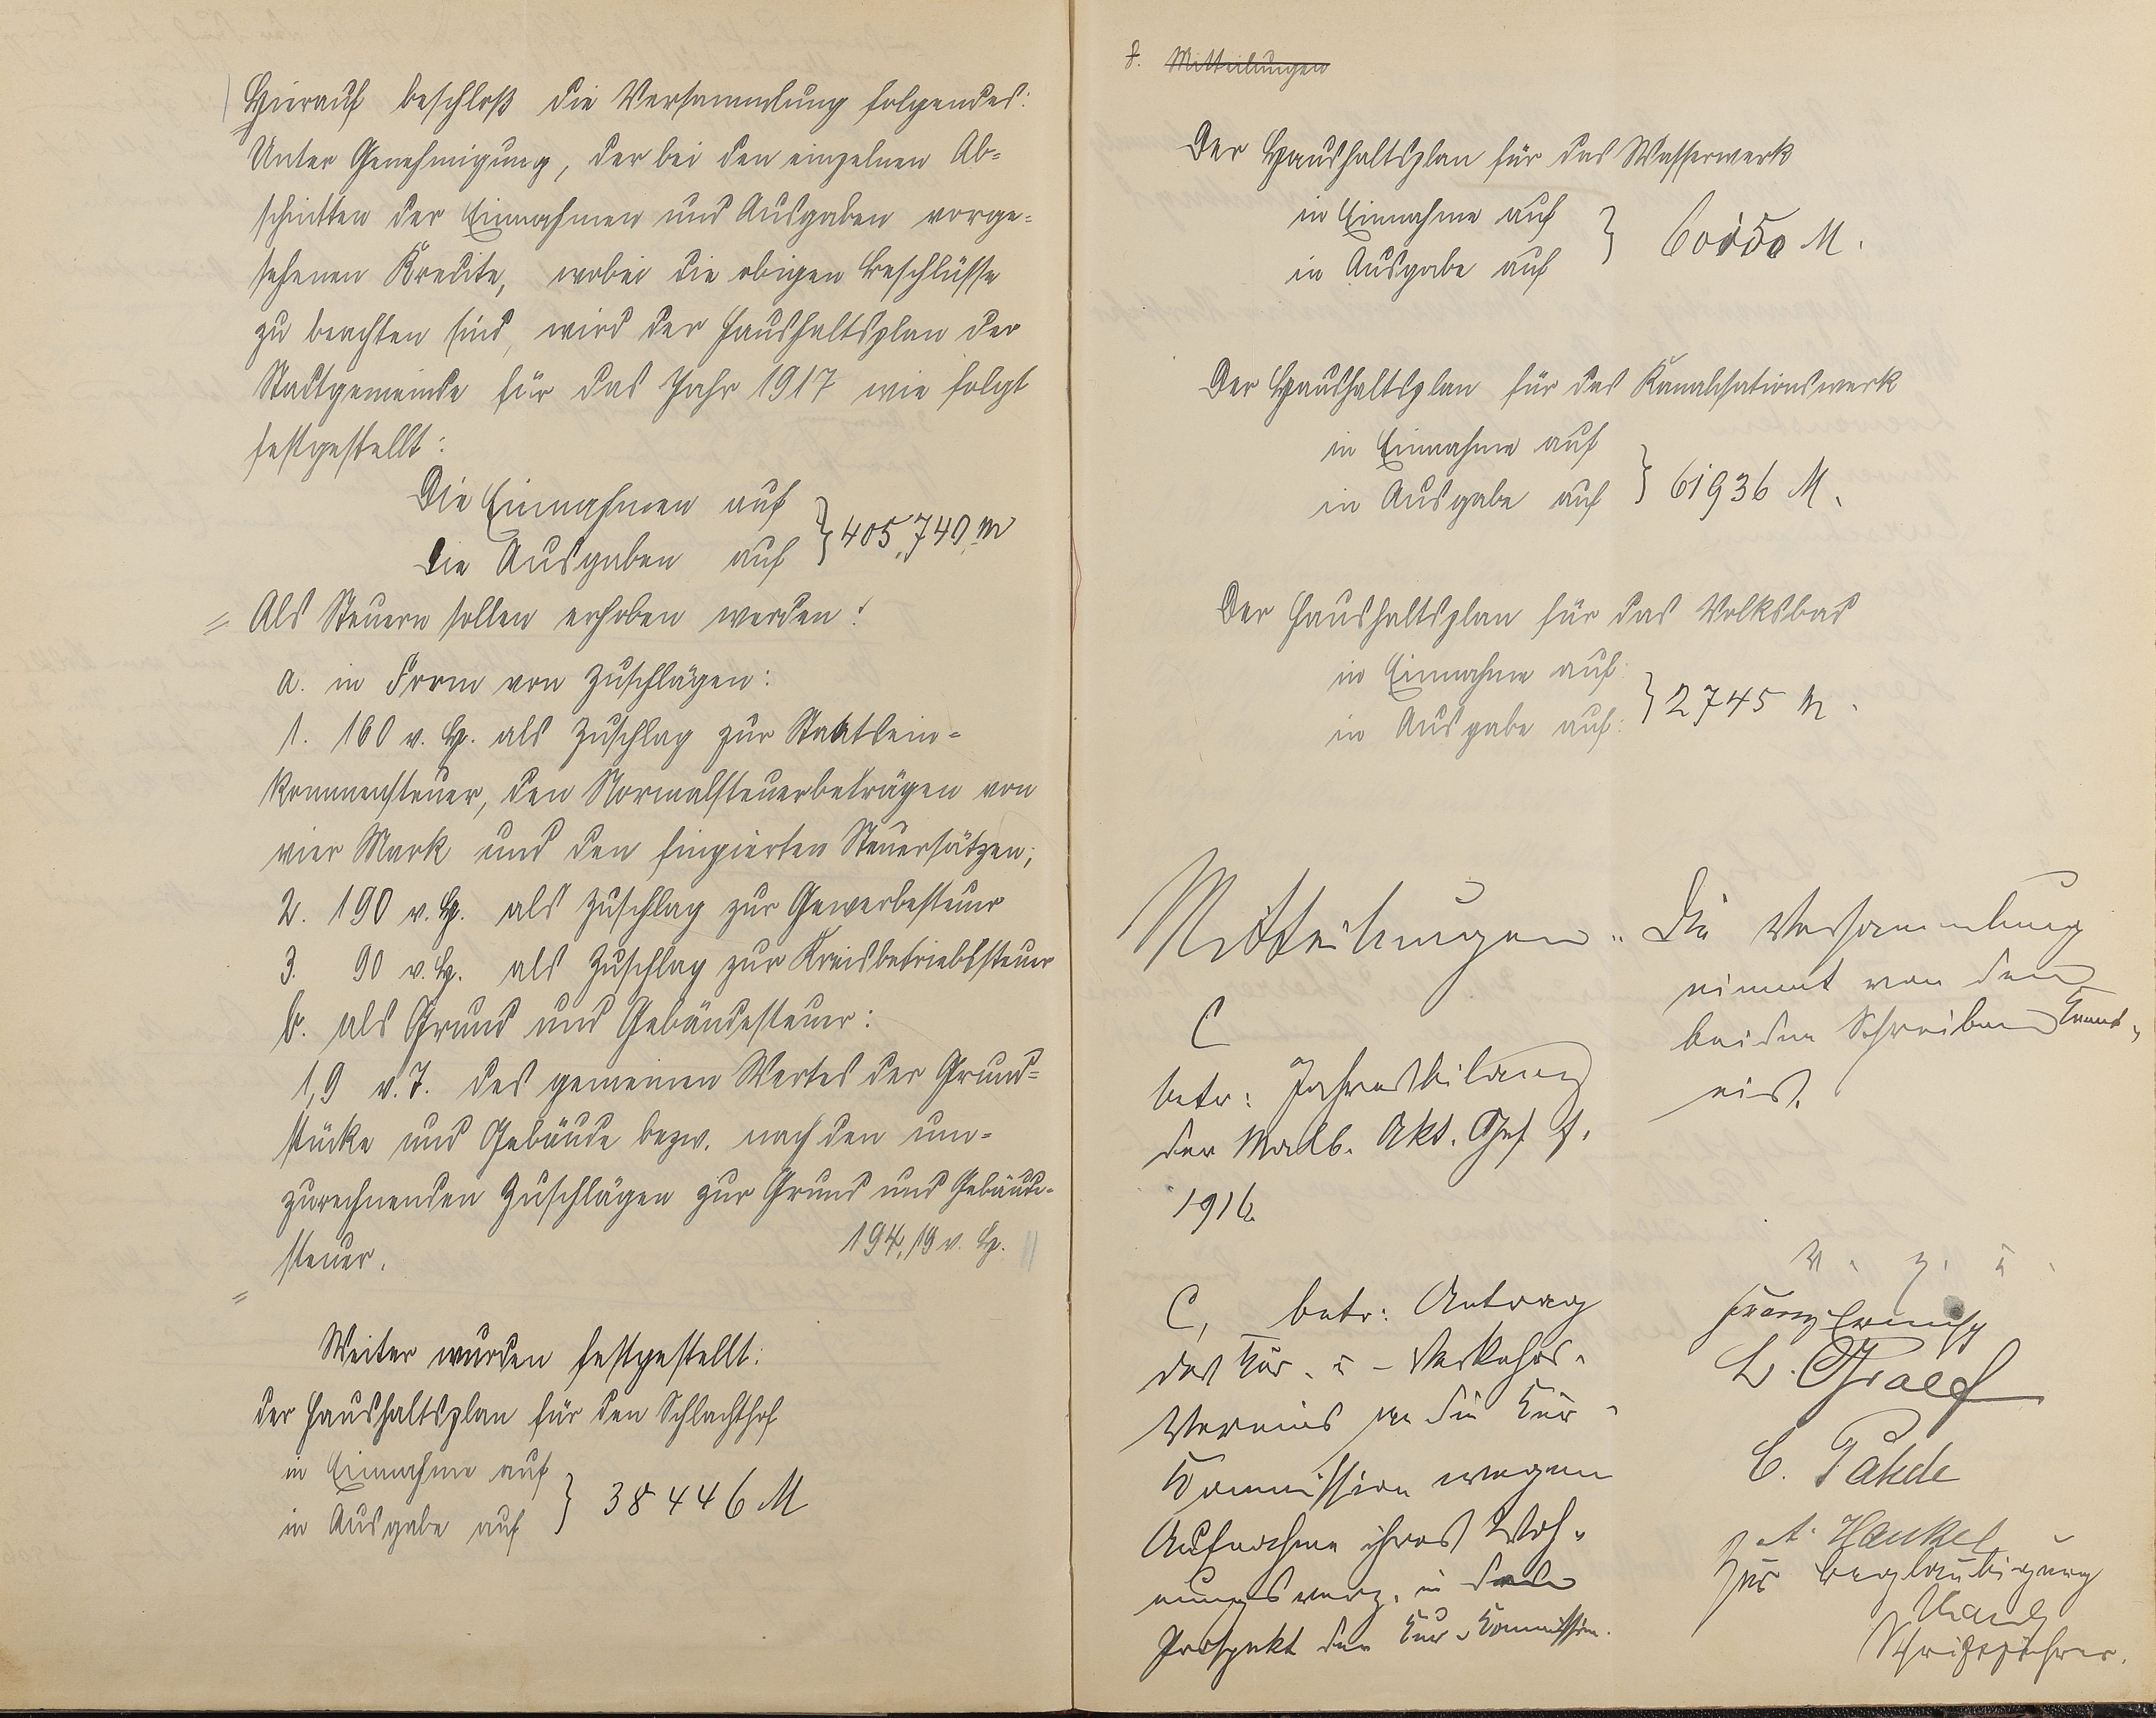 Hierauf beschloß die Versammlung folgendes:
Unter Genehmigung, der bei den einzelnen Ab-
schnitten der Einnahmen und Ausgaben vorge-
sehenen Kredite, wobei die obigen Beschlüsse
zu beachten sind, wird der Haushaltsplan der
Stadtgemeinde für das Jahr 1917 wie folgt
festgestellt:
Die Einnahmen auf
die Ausgaben auf } 405,740 M
Als Steuern sollen erhoben werden:
a. in Form von Zuschlägen:
1. 160 v. H. als Zuschlag zur Staatsein-
kommensteuer, den Normalsteuerbeträgen von
vier Mark und den fingierten Steuersätzen;
2. 190 v. H. als Zuschlag zur Gewerbesteuer
3. 90 v. H. als Zuschlag zur Kreisbetriebssteuer
b. als Grund und Gebäudesteuer:
1,9 v. T. des gemeinen Wertes der Grund-
stücke und Gebäude bezw. nach den um-
zurechnenden Zuschlägen zur Grund und Gebäude-
steuer. 194,19 v. H.
Weiter wurden festgestellt:
der Haushaltsplan für den Schlachthof
in Einnahme auf
in Ausgabe auf } 38446 M
8. Mitteilungen
Der Haushaltsplan für das Wasserwerk
in Einnahme auf
in Ausgabe auf } 60150 M.
Der Haushaltsplan für das Kanalisationswerk
in Einnahme auf
in Ausgabe auf } 61936 M.
Der Haushaltsplan für das Volksbad
in Einnahme auf:
in Ausgabe auf: } 2745 M.
Mitteilungen.
C
betr: Jahresbilanz
der Malb. Akt. Ges. f.
1916.
C, betr: Antrag
des Kur- u - Verkehrs-
Vereins an die Kur-
Kommission wegen
Aufnahme ihres Woh-
nungsverz. in den
Prospekt der Kur-Kommission.
Die Versammlung
nimmt von den
beiden Schreiben Kennt-
nis.
v. g. u.
Franz
W. Graef
C. Pahde
A. Henkel
Zur Beglaubigung
Schriftführer.